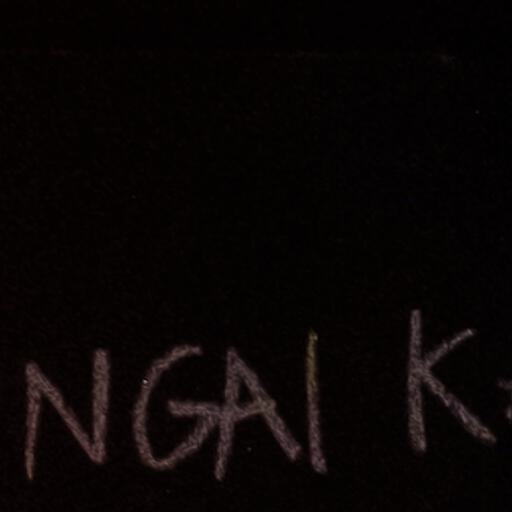 NGAI K